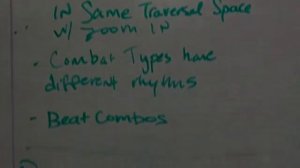 IN Same Traversal Space
w/ Zoom IN
- Combat Types have
different rhythms
- Beat Combos